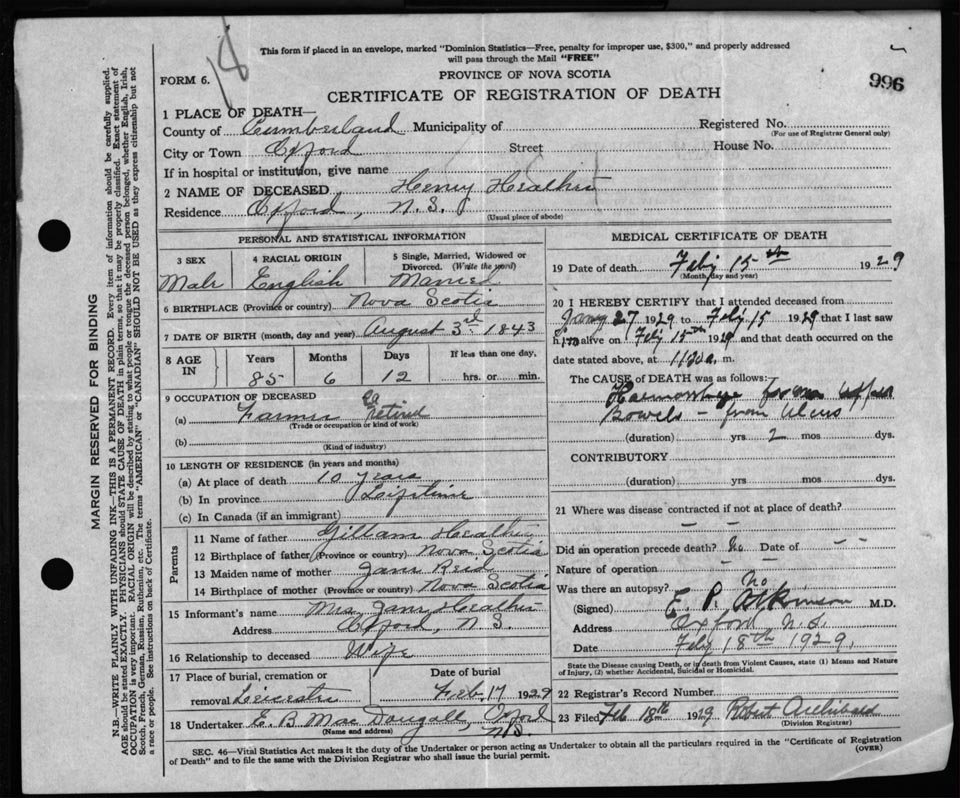 18
This form if placed in an envelope, marked "Dominion Statistics—Free, penalty for improper use, $300," and properly addressed
will pass through the Mail "FREE"
996
FORM 6.
PROVINCE OF NOVA SCOTIA
CERTIFICATE OF REGISTRATION OF DEATH
1 PLACE OF DEATH—
County of Cumberland Municipality of Registered No.
(For use of Registrar General only)
City or Town Oxford Street House No.
If in hospital or institution, give name
2 NAME OF DECEASED Henry Heather
Residence Oxford, N.S.
(Usual place of abode)
PERSONAL AND STATISTICAL INFORMATION
3 SEX Male
4 RACIAL ORIGIN English
5 Single, Married, Widowed or Divorced. (Write the word) Married
6 BIRTHPLACE (Province or country) Nova Scotia
7 DATE OF BIRTH (month, day and year) August 3rd 1843
8 AGE IN
Years Months Days If less than one day,
85 6 12 hrs. or min.
9 OCCUPATION OF DECEASED
(a) Farmer Retired
(Trade or occupation or kind of work)
(b)
(Kind of industry)
10 LENGTH OF RESIDENCE (in years and months)
(a) At place of death 10 years
(b) In province Lifetime
(c) In Canada (if an immigrant)
Parents
11 Name of father
12 Birthplace of father (Province or country) Nova Scotia
13 Maiden name of mother Jane Reid
14 Birthplace of mother (Province or country) Nova Scotia
15 Informant's name Mrs. Jane Heather
Address Oxford, N.S.
16 Relationship to deceased Wife
17 Place of burial, cremation or removal Leicester
Date of burial Feb. 17 1929
18 Undertaker E. B. MacDougall, Oxford N.S.
(Name and address)
MEDICAL CERTIFICATE OF DEATH
19 Date of death Feby 15th 1929
(Month, day and year)
20 I HEREBY CERTIFY that I attended deceased from
Jany 27 1929 to Feby 15 1929 that I last saw
him alive on Feby 15th 1929 and that death occurred on the
date stated above, at a. m.
The CAUSE of DEATH was as follows:—
Haemorrhage from upper
Bowels — from Ulcus
(duration) yrs 2 mos dys.
CONTRIBUTORY
(duration) yrs. mos dys.
21 Where was disease contracted if not at place of death?
— —
Did an operation precede death? No Date of — —
Nature of operation — —
Was there an autopsy? No
(Signed) E. P. Atkinson M.D.
Address Oxford, N.S.
Date Feby 18th 1929.
State the Disease causing Death, or in death from Violent Causes, state (1) Means and Nature
of Injury, (2) whether Accidental, Suicidal or Homicidal.
22 Registrar's Record Number
23 Filed Feb 18th 1929 Robert Archibald
(Division Registrar)
SEC. 46—Vital Statistics Act makes it the duty of the Undertaker or person acting as Undertaker to obtain all the particulars required in the "Certificate of Registration
of Death" and to file the same with the Division Registrar who shall issue the burial permit.
(OVER)
MARGIN RESERVED FOR BINDING
N.B.—WRITE PLAINLY WITH UNFADING INK—THIS IS A PERMANENT RECORD. Every item of information should be carefully supplied.
AGE should be stated EXACTLY. PHYSICIANS should STATE CAUSE OF DEATH in plain terms, so that it may be properly classified. Exact statement of
OCCUPATION is very important. RACIAL ORIGIN will be described by stating to what people or tongue the deceased person belonged, whether English, Irish,
Scotch, French, German, Russian, Ruthenian, etc. The terms "AMERICAN" or "CANADIAN" SHOULD NOT BE USED as they express citizenship but not
a race or people. See instructions on back of Certificate.